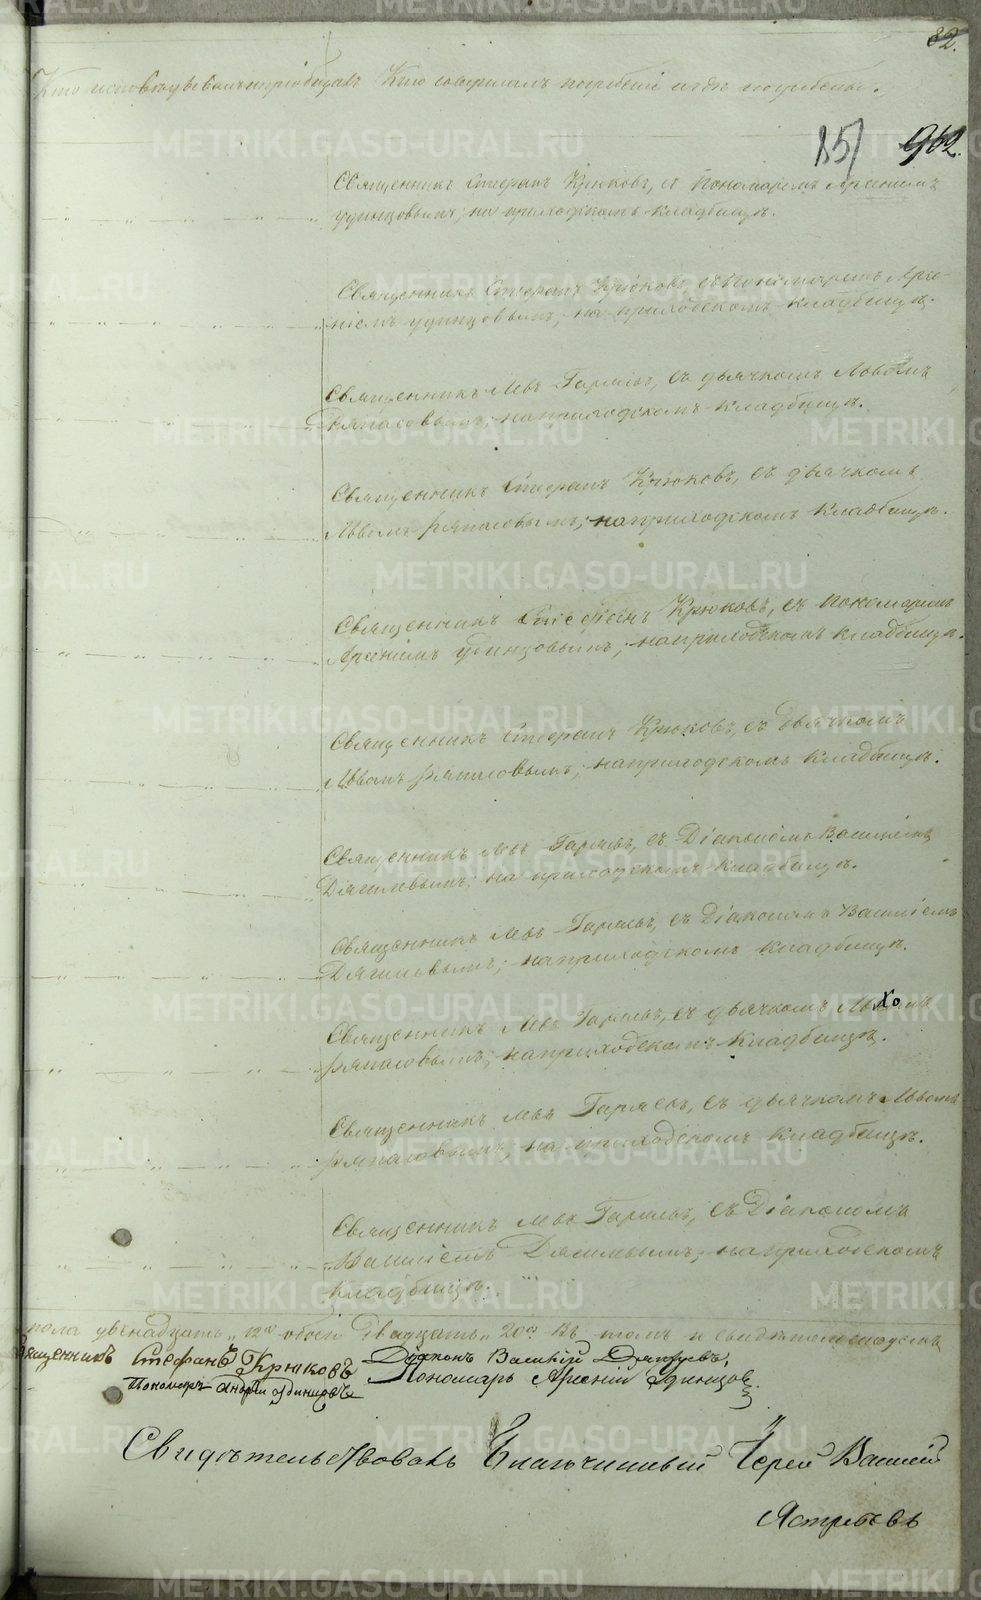 82.
Кто исповѣдывалъ и пріобщалъ Кто совершалъ погребеніе и гдѣ погребены.
157 962.
Священникъ Стефанъ Крюковъ, съ Пономаремъ Арсеніемъ
Удинцовымъ; на приходскомъ кладбищѣ.
Священникъ Стефанъ Крюковъ, съ Пономаремъ Арсе-
ніемъ Удинцовымъ; на приходскомъ кладбищѣ.
Священникъ Левъ Гаряевъ, съ дьячкомъ
на приходскомъ кладбищѣ.
Священникъ Стефанъ Крюковъ, съ дьячкомъ
Львомъ Ряпасовымъ; на приходскомъ кладбищѣ.
Священникъ Стефанъ Крюковъ, съ Пономаремъ
Арсеніемъ Удинцовымъ; на приходскомъ кладбищѣ.
Священникъ Стефанъ Крюковъ, съ дьячкомъ
Львомъ Ряпасовымъ; на приходскомъ кладбищѣ.
Священникъ Левъ Гаряевъ, съ Діакономъ Василіемъ
на приходскомъ кладбищѣ.
Священникъ Левъ Гаряевъ, съ Діакономъ Василіемъ
на приходскомъ кладбищѣ.
Священникъ Левъ Гаряевъ, съ дьячкомъ
Ряпасовымъ; на приходскомъ кладбищѣ.
Священникъ Левъ Гаряевъ, съ дьячкомъ Львомъ
Ряпасовымъ, на приходскомъ кладбищѣ.
Священникъ Левъ Гаряевъ, съ Діакономъ
Василіемъ на приходскомъ
кладбищѣ.
пола двѣнадцать „12ть обоего двадцать „20ть Въ томъ и свидѣтельствуемъ
Священникъ Стефанъ Крюковъ Діаконъ Василій
Пономарь Андрей Удинцовъ Пономарь Арсеній Удинцовъ.
Свидѣтельствовалъ Благочинный Іерей Василій
Ястребовъ
METRIKI.GASO-URAL.RU